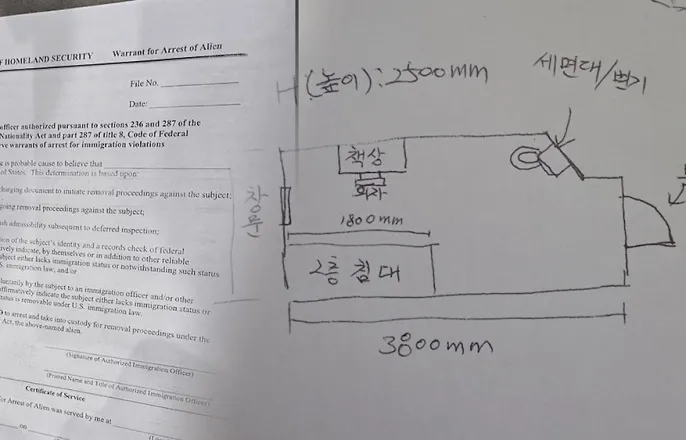 OF HOMELAND SECURITY Warrant for Arrest of Alien
File No.
Date:
officer authorized pursuant to sections 236 and 287 of the
Nationality Act and part 287 of title 8, Code of Federal
ve warrants of arrest for immigration violations
e is probable cause to believe that
d States. This determination is based upon:
charging document to initiate removal proceedings against the subject;
going removal proceedings against the subject;
admissibility subsequent to deferred inspection;
ion of the subject's identity and a records check of federal
ively indicate, by themselves or in addition to other reliable
bject either lacks immigration status or notwithstanding such status
S. immigration law; and/or
luntarily by the subject to an immigration officer and/or other
affirmatively indicate the subject either lacks immigration status or
status is removable under U.S. immigration law.
D to arrest and take into custody for removal proceedings under the
Act, the above-named alien.
(Signature of Authorized Immigration Officer)
(Printed Name and Title of Authorized Immigration Officer)
Certificate of Service
for Arrest of Alien was served by me at
on
H (높이): 2500mm
세면대/변기
책상
의자
창문
1800mm
2층 침대
3800mm